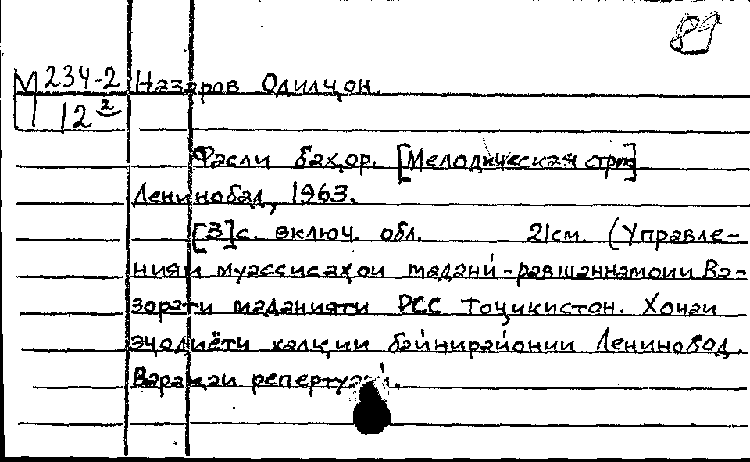 84
М 234-2 Назаров Одилҷон.
12 2
Фасли баҳор. [Мелодическая стр]
Ленинобад, 1963.
[3]с. включ. обл. 21см. (Управле-
нияи муассисаҳои мадани-равшаннамоии Ва-
зорати маданияти РСС Тоҷикистон. Хонаи
эҷодиёти халқии байнирайонии Ленинобод.
Варақаи репертуари.